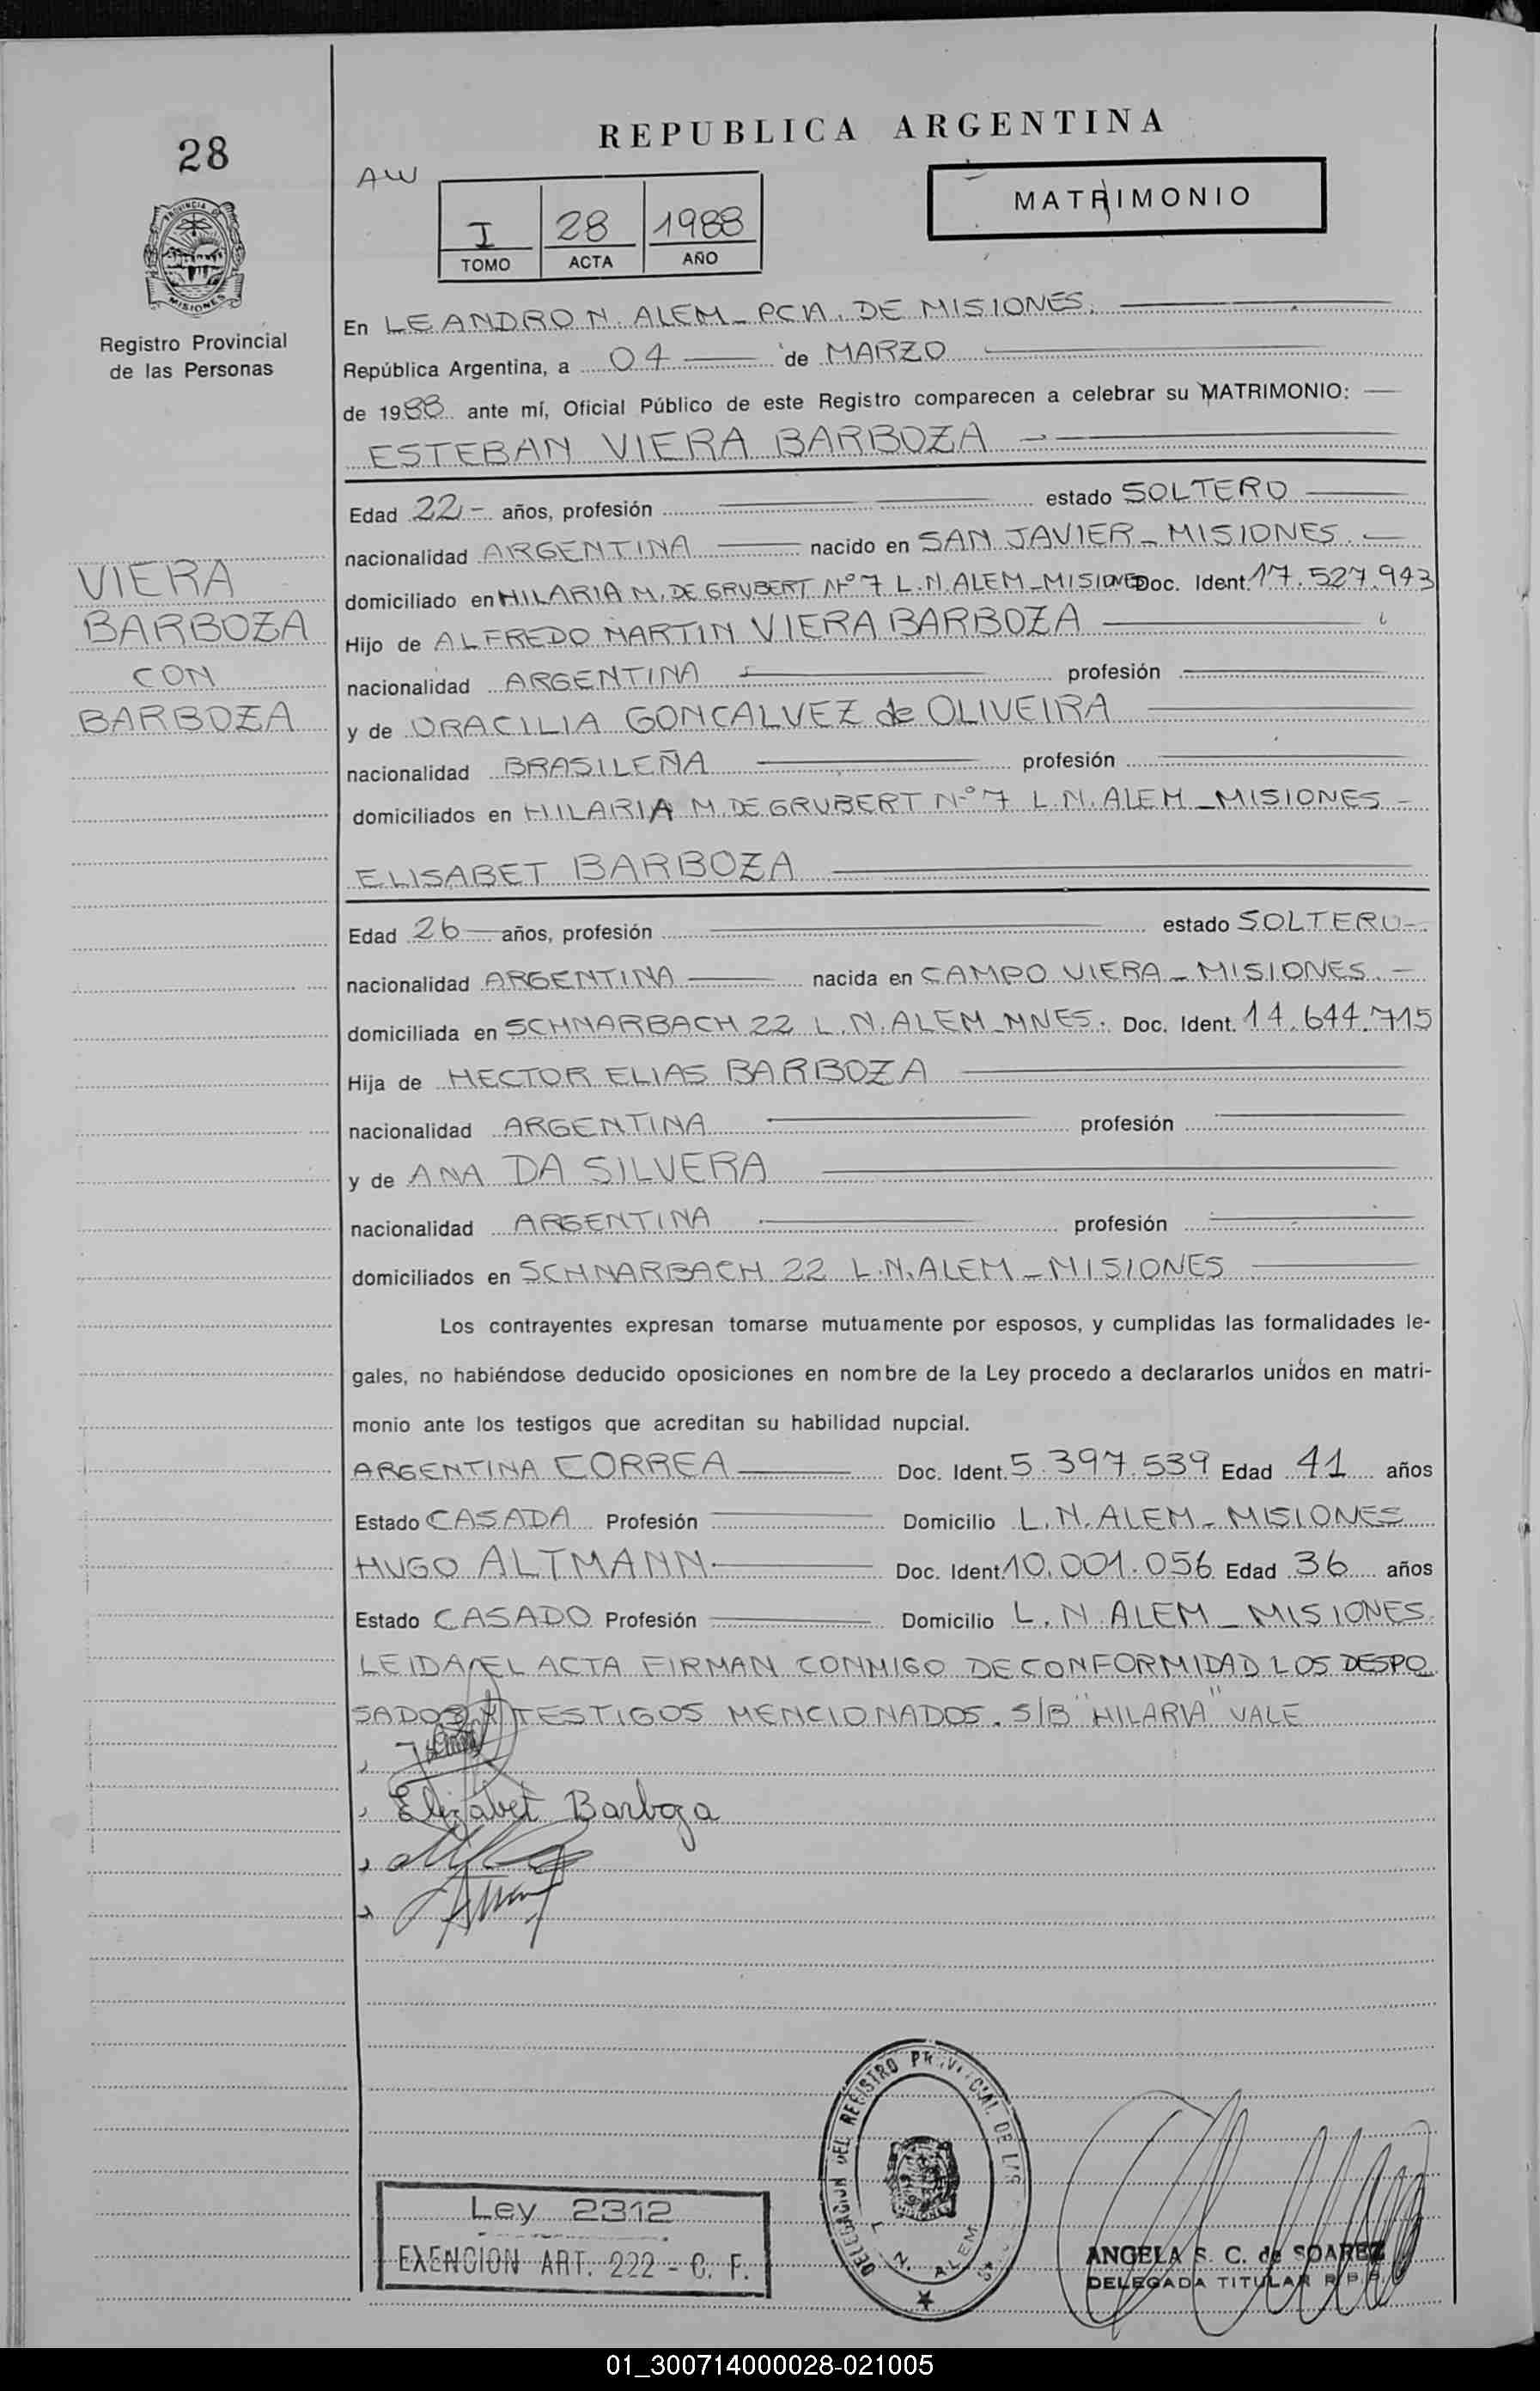 REPUBLICA ARGENTINA
28
AW
MATRIMONIO
I 28 1988
TOMO ACTA AÑO
PROVINCIA DE
MISIONES
Registro Provincial
de las Personas
En LEANDRO N. ALEM - PCIA. DE MISIONES.
República Argentina, a 04 de MARZO
de 1988 ante mí, Oficial Público de este Registro comparecen a celebrar su MATRIMONIO:
ESTEBAN VIERA BARBOZA
Edad 22- años, profesión estado SOLTERO
nacionalidad ARGENTINA nacido en SAN JAVIER - MISIONES.
domiciliado en HILARIA M. DE GRUBERT Nº 7 L.N.ALEM-MISIONES Doc. Ident. 17.527.943
Hijo de ALFREDO MARTIN VIERA BARBOZA
nacionalidad ARGENTINA profesión
y de ORACILIA GONCALVEZ de OLIVEIRA
nacionalidad BRASILEÑA profesión
domiciliados en HILARIA M. DE GRUBERT Nº 7 L.N. ALEM - MISIONES -
VIERA
BARBOZA
CON
BARBOZA
ELISABET BARBOZA
Edad 26 años, profesión estado SOLTERO-
nacionalidad ARGENTINA nacida en CAMPO VIERA - MISIONES. -
domiciliada en SCHNARBACH 22 L.N. ALEM-MNES. Doc. Ident. 14.644.715
Hija de HECTOR ELIAS BARBOZA
nacionalidad ARGENTINA profesión
y de ANA DA SILVERA
nacionalidad ARGENTINA profesión
domiciliados en SCHNARBACH 22 L.N.ALEM - MISIONES
Los contrayentes expresan tomarse mutuamente por esposos, y cumplidas las formalidades le-
gales, no habiéndose deducido oposiciones en nombre de la Ley procedo a declararlos unidos en matri-
monio ante los testigos que acreditan su habilidad nupcial.
ARGENTINA CORREA Doc. Ident. 5.397.539 Edad 41 años
Estado CASADA Profesión Domicilio L.N.ALEM - MISIONES
HUGO ALTMANN Doc. Ident. 10.001.056 Edad 36 años
Estado CASADO Profesión Domicilio L.N. ALEM - MISIONES.
LEIDA EL ACTA FIRMAN CONMIGO DE CONFORMIDAD LOS DESPO
SADOS Y TESTIGOS MENCIONADOS. S/B "HILARIA" VALE
Elizabet Barboza
DELEGACION DEL REGISTRO PROVINCIAL DE LAS
L. N. ALEM
Ley 2312
EXENCION ART. 222 - C. F.
ANGELA S. C. de SOAREZ
DELEGADA TITULAR R.P.P.
01_300714000028-021005